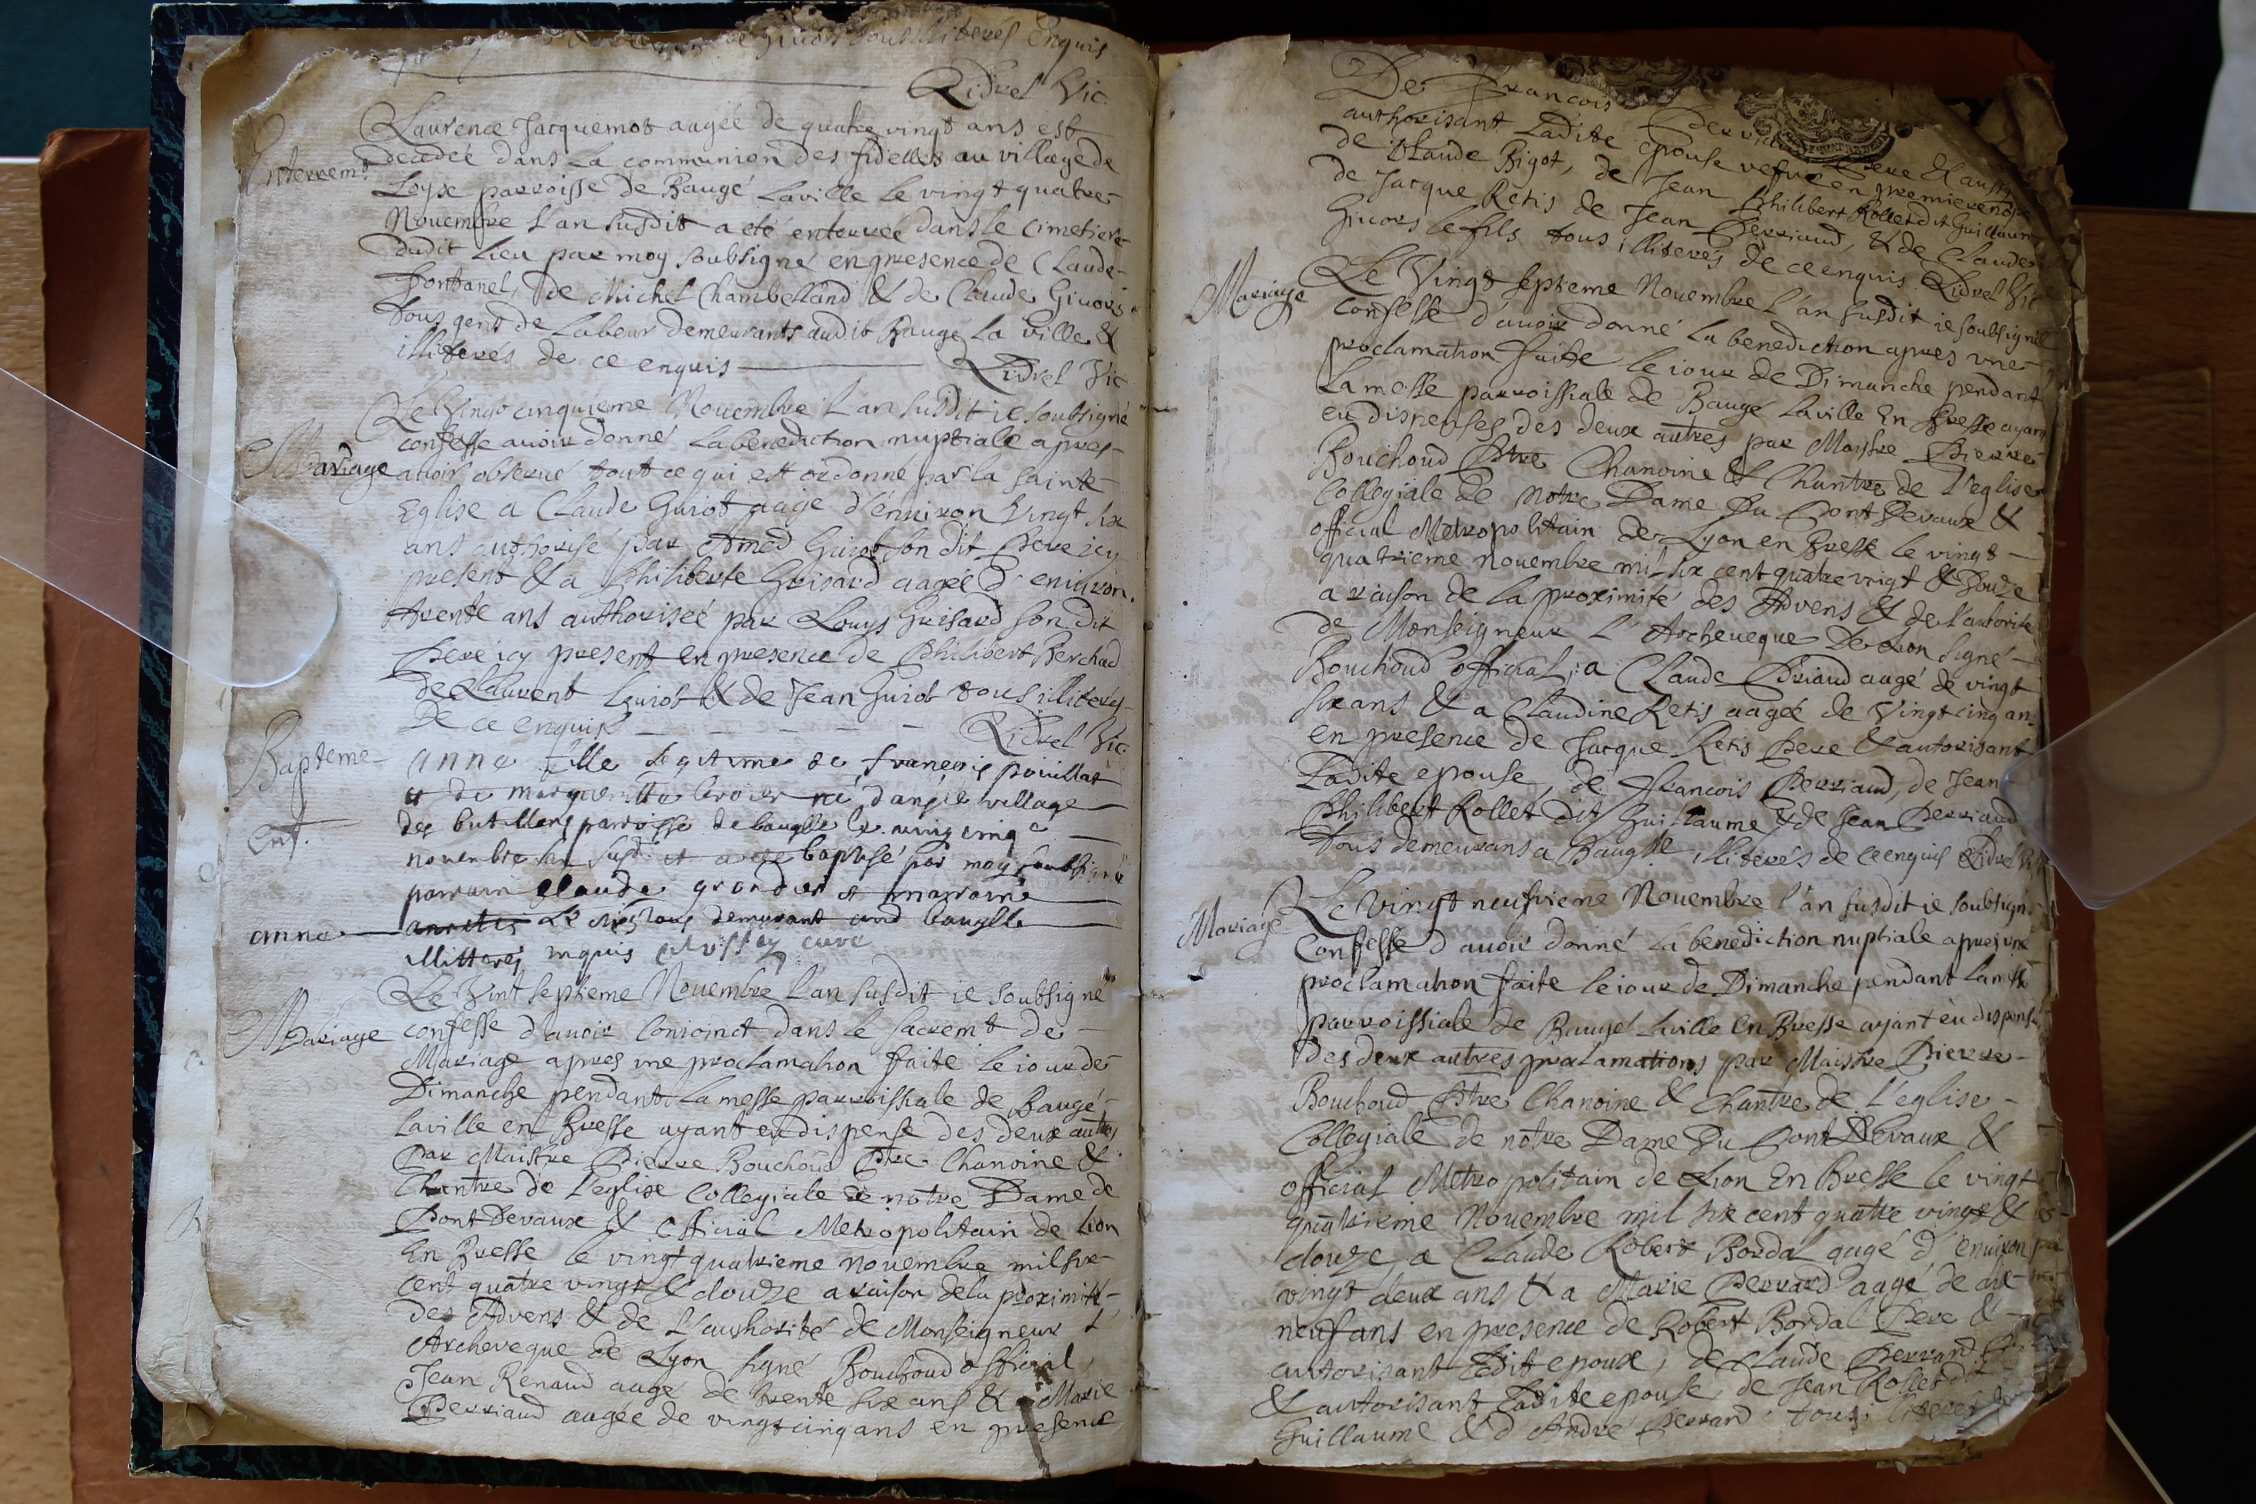 Givors tous illiterés Enquis
Ridrel Vic
Enterremt
Laurence Jacquemot aagée de quatre vingt ans est
decedée dans la communion des fidelles au village de
Loyse parroisse de Baugé Laville le vingt quatre
Novembre l'an susdit a eté enterrée dans le cimetiere
dudit lieu par moy soubsigné en presence de Claude
Fontanel, de Michel Chambelland & de Claude Givors
tous gens de labeur demeurants audit Baugé la ville &
illiterés de ce enquis Ridrel Vic
Mariage
Le Vingt cinquieme Novembre l'an susdit ie soubsigné
confesse avoir donné la benediction nuptiale apres
avoir observé tout ce qui est ordonné par la sainte
Eglise a Claude Guiot aagé d'environ Vingt six
ans authorisé par Amed Guiot son dit Pere icy
present & a Philiberte Grisard aagée d'environ
trente ans authorisée par Louys Grisard son dit
Pere icy present en presence de Philibert Berchad
de Laurent Guiot & de Jean Guiot tous illiterés
De ce enquis Ridrel Vic
Bapteme
anne fille legitime de françois pouillat
et de margueritte broier né dans le village
des butillons parroisse de baugelle le vingt cinq
ent.
novembre an susd et a este baptisé par moy soubsigné
parrain Claude grondier et marraine
anne
le tous demurant aud baugelle
illitterés inquis cure
Mariage
Le Vint septieme Novembre l'an susdit ie soubsigné
confesse d'avoir conioinct dans le sacremt de
Mariage apres une proclamation faite le iour de
Dimanche pendant la messe parroissiale de Baugé
Laville en Bresse ayant eu dispense des deux autres
Par Maistre Pierre Bouchoud Ptre Chanoine &
Chantre de l'eglise collegiale de notre Dame de
Pont Devaux & official Metropolitain de Lion
En Bresse le vingt quatrieme novembre mil six
cent quatre vingt & douze a raison de la proximité
des Advens & de l'authorité de Monseigneur l'
Archeveque de Lyon signé Bouchoud official,
Jean Renaud aagé de trente six ans & a Marie
Perriaud aagée de vingt cinq ans en presence
De François Perriaud Pere & aussy
authorisant Ladite epouse vefve en premiere nopce
de Claude Bigot, de Jean Philibert Rollet dit Guillaume
de Jacque Retis de Jean Perriaud, & de Claude
Givors le fils tous illiterés de ce enquis Ridrel Vic
Mariage
Le Vingt septieme Novembre l'an susdit ie soubsigné
confesse d'avoir donné la benediction apres une
proclamation faite le iour de Dimanche pendant
la messe parroissiale de Baugé Laville En Bresse ayant
eu dispenses des deux autres par Maistre Pierre
Bouchoud Ptre Chanoine & Chantre de l'eglise
Collegiale de Notre Dame Du Pont Devaux &
official Metropolitain de Lyon en Bresse le vingt
quatrieme novembre mil six cent quatre vingt & Douze
a raison de la proximité des Advens & de l'autorité
de Monseigneur l'Archeveque De Lion signé
Bouchoud official; a Claude Priaud aagé de vingt
six ans & a Claudine Retis aagée de Vingt cinq ans
en presence de Jacque Retis Pere & autorisant
Ladite epouse, de François Perriaud, de Jean
Philibert Rollet Dit Guillaume & de Jean Perriaud
tous demeurans a Baugelle illiterés de ce enquis Ridrel Vic
Mariage
Le Vingt neufvieme Novembre l'an susdit ie soubsigné
confesse d'avoir donné la benediction nuptiale apres une
proclamation faite le iour de Dimanche pendant la messe
parroissiale de Baugé Laville En Bresse ayant eu dispense
des deux autres proclamations par Maistre Pierre
Bouchoud Ptre Chanoine & Chantre de L'eglise
Collegiale de notre Dame Du Pont Devaux &
official Metropolitain de Lion En Bresse le vingt
quatrieme Novembre mil six cent quatre vingt &
douze, a Claude Robert Bordal aagé d'environ
vingt deux ans & a Marie Perrard aagé de dix
neuf ans en presence de Robert Bordal Pere &
autorisant Ledit epoux, de Claude Perrard
& autorisant Ladite epouse de Jean Rollet dit
Guillaume & d'André Perrard tous iliterés